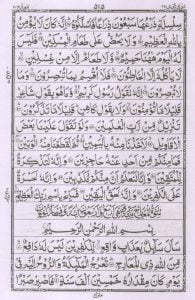 ٥١٥
سِلْسِلَةٍ ذَرْعُهَا سَبْعُوْنَ ذِرَاعًا فَاسْلُكُوْهُ اِنَّهٗ كَانَ لَا يُؤْمِنُ
بِاللّٰهِ الْعَظِيْمِ وَلَا يَحُضُّ عَلٰى طَعَامِ الْمِسْكِيْنِ فَلَيْسَ
لَهُ الْيَوْمَ هٰهُنَا حَمِيْمٌ وَّلَا طَعَامٌ اِلَّا مِنْ غِسْلِيْنٍ لَّا
يَاْكُلُهٗۤ اِلَّا الْخَاطِئُوْنَ فَلَاۤ اُقْسِمُ بِمَا تُبْصِرُوْنَ وَمَا
لَا تُبْصِرُوْنَ اِنَّهٗ لَقَوْلُ رَسُوْلٍ كَرِيْمٍ وَّمَا هُوَ بِقَوْلِ شَاعِرٍ
قَلِيْلًا مَّا تُؤْمِنُوْنَ وَلَا بِقَوْلِ كَاهِنٍ قَلِيْلًا مَّا تَذَكَّرُوْنَ
تَنْزِيْلٌ مِّنْ رَّبِّ الْعٰلَمِيْنَ وَلَوْ تَقَوَّلَ عَلَيْنَا بَعْضَ
الْاَقَاوِيْلِ لَاَخَذْنَا مِنْهُ بِالْيَمِيْنِ ثُمَّ لَقَطَعْنَا مِنْهُ الْوَتِيْنَ
فَمَا مِنْكُمْ مِّنْ اَحَدٍ عَنْهُ حَاجِزِيْنَ وَاِنَّهٗ لَتَذْكِرَةٌ
لِّلْمُتَّقِيْنَ وَاِنَّا لَنَعْلَمُ اَنَّ مِنْكُمْ مُّكَذِّبِيْنَ وَاِنَّهٗ لَحَسْرَةٌ
عَلَى الْكٰفِرِيْنَ وَاِنَّهٗ لَحَقُّ الْيَقِيْنِ فَسَبِّحْ بِاسْمِ رَبِّكَ الْعَظِيْمِ
بِسْمِ اللّٰهِ الرَّحْمٰنِ الرَّحِيْمِ
سَاَلَ سَآئِلٌ بِعَذَابٍ وَّاقِعٍ لِّلْكٰفِرِيْنَ لَيْسَ لَهٗ دَافِعٌ
مِّنَ اللّٰهِ ذِى الْمَعَارِجِ تَعْرُجُ الْمَلٰٓئِكَةُ وَالرُّوْحُ اِلَيْهِ فِيْ
يَوْمٍ كَانَ مِقْدَارُهٗ خَمْسِيْنَ اَلْفَ سَنَةٍ فَاصْبِرْ صَبْرًا